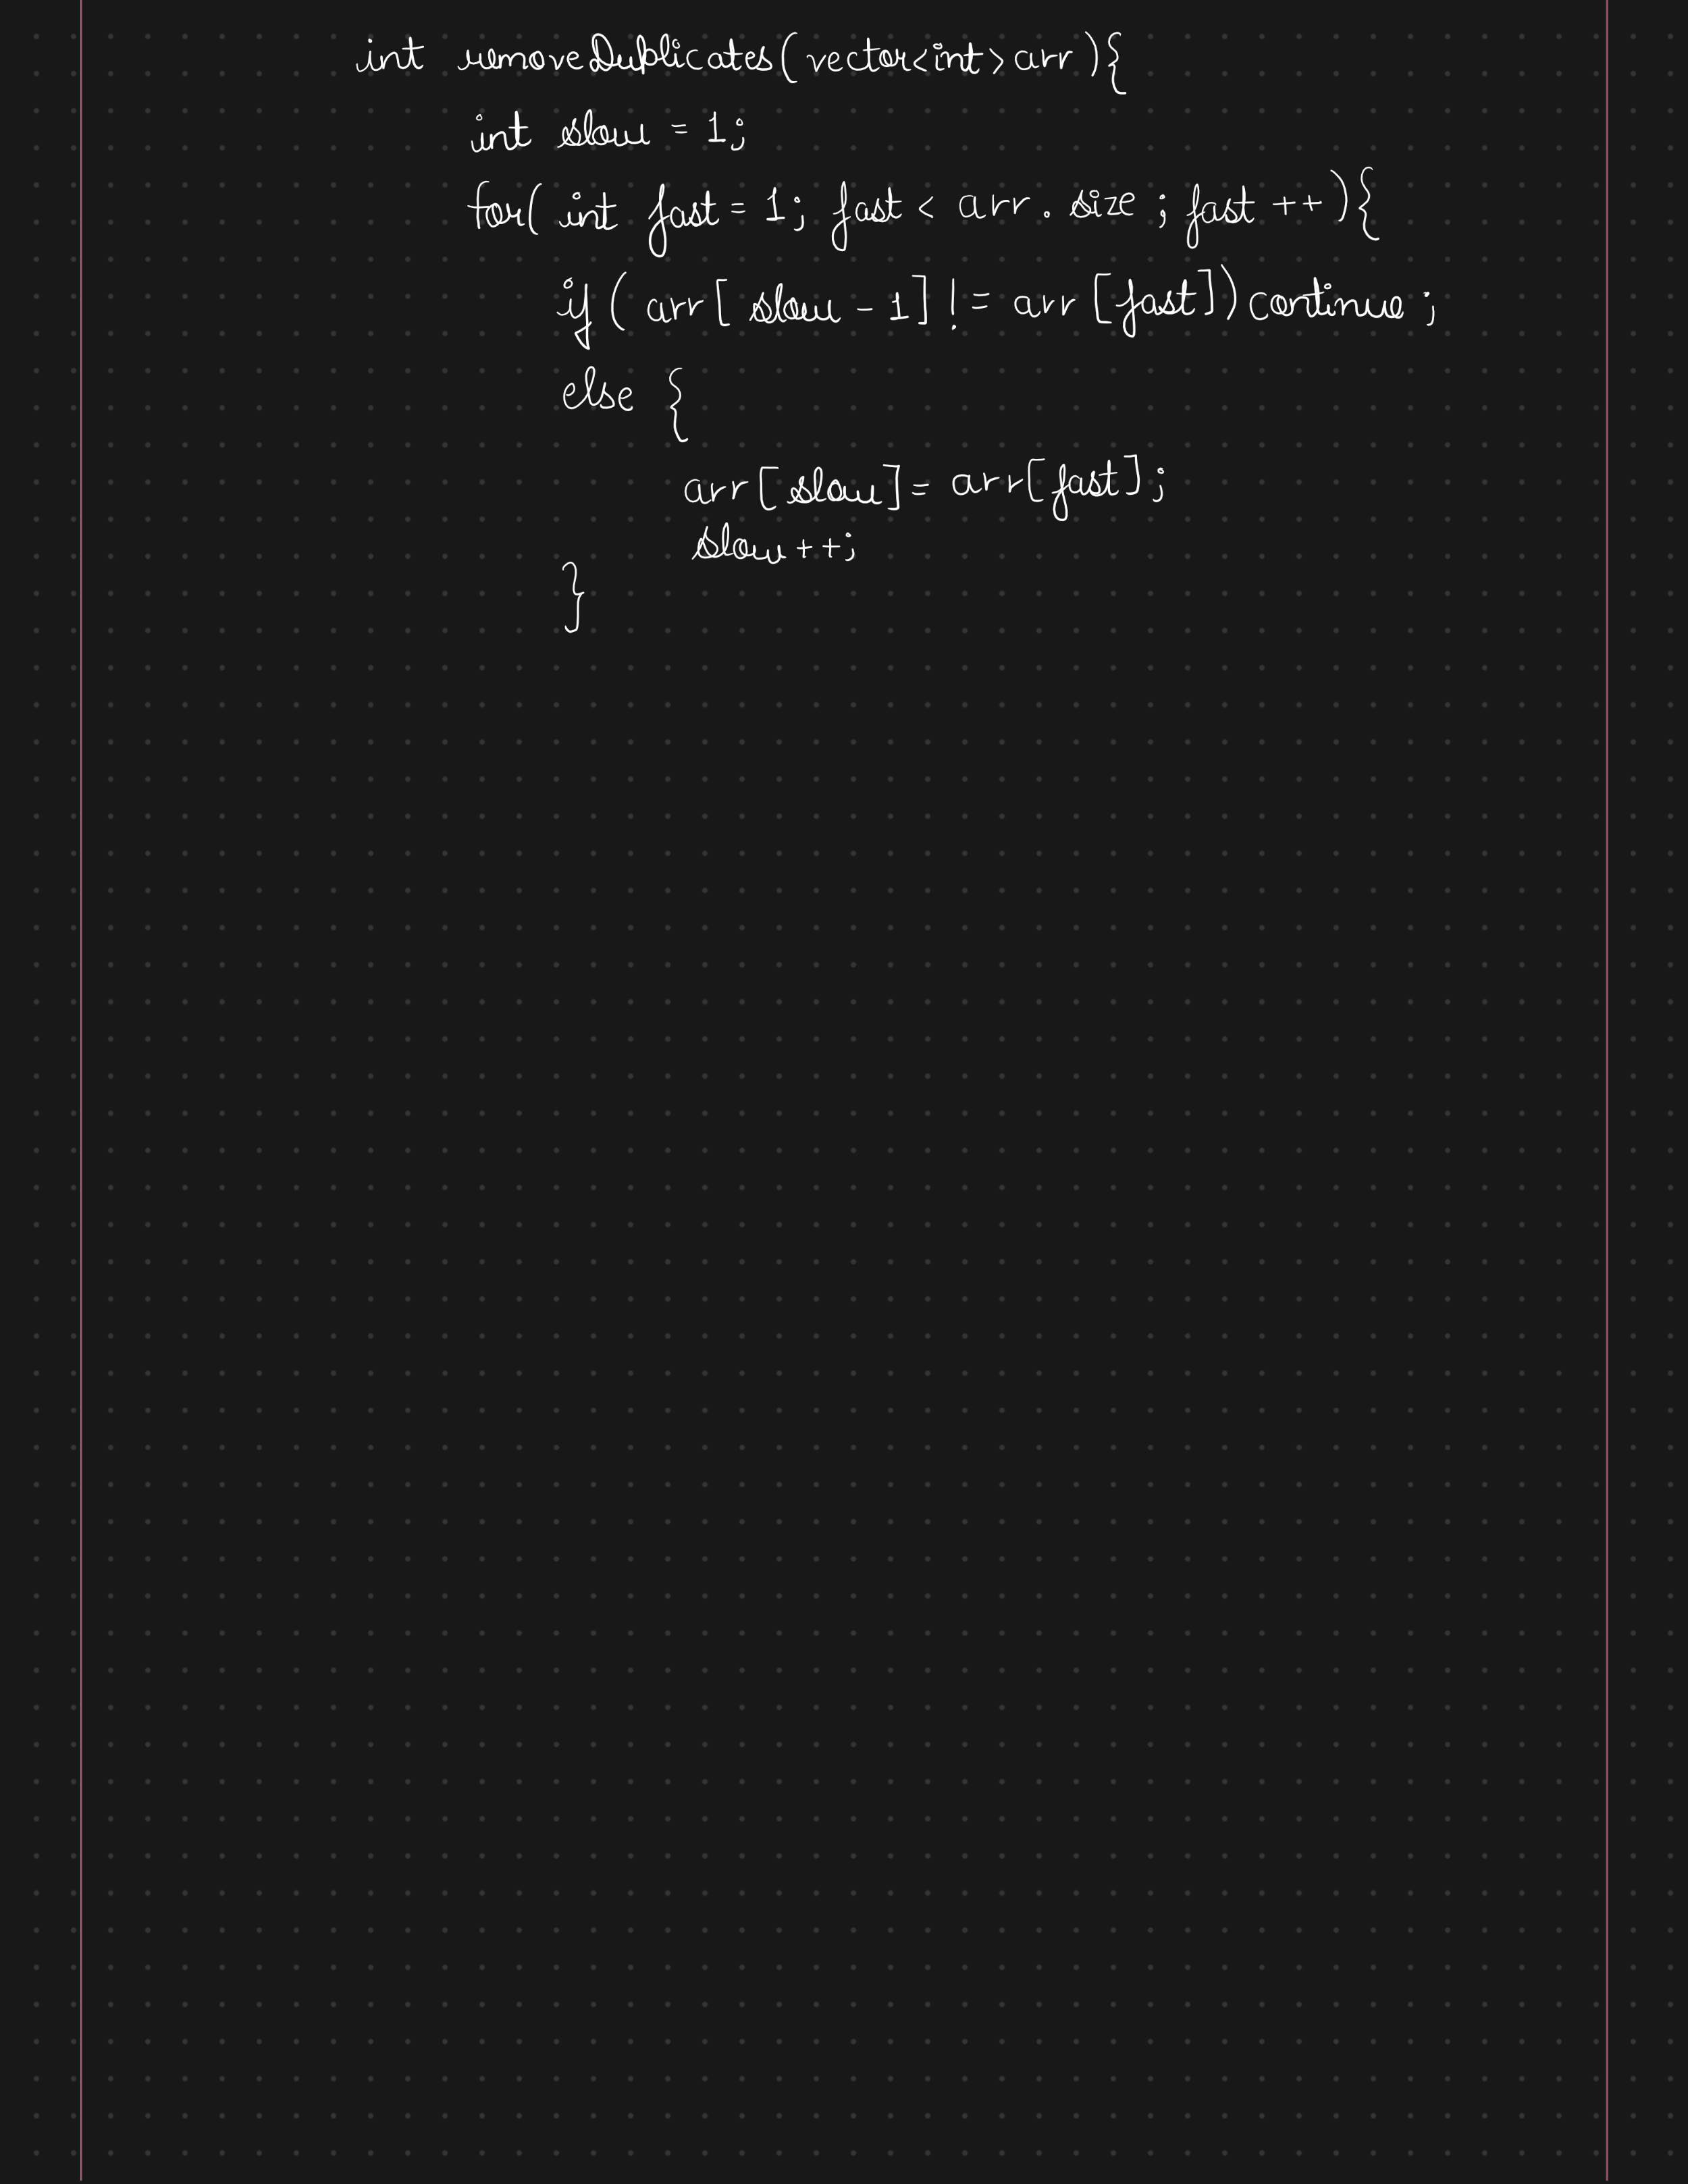 int removeDuplicates(vector<int>arr){
int slow = 1;
for( int fast = 1; fast < arr. size ; fast ++){
if ( arr[ slow - 1] != arr [fast]) continue ;
else {
arr[ slow] = arr[fast];
slow++;
}